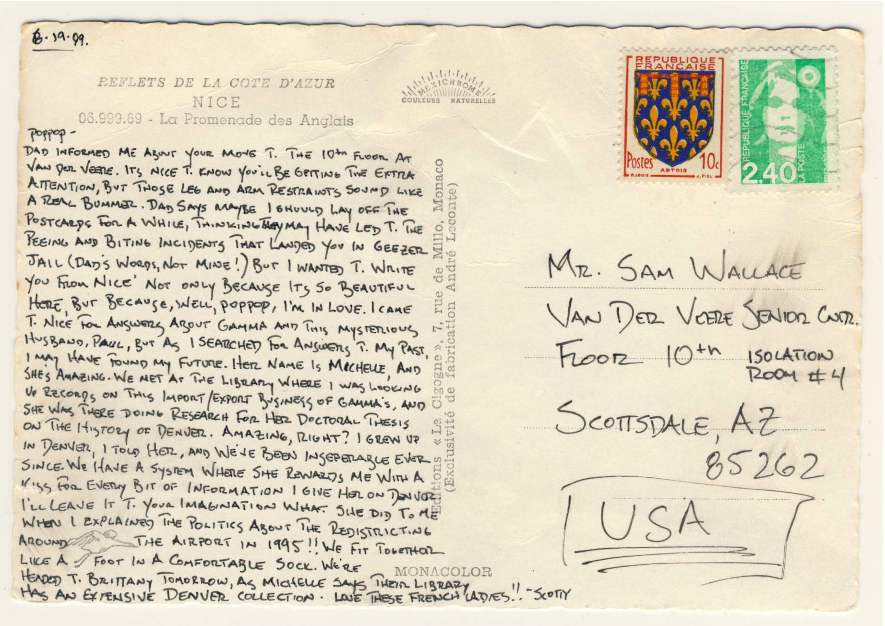 8·19·99.
REFLETS DE LA COTE D'AZUR
NICE
06.999.69 - La Promenade des Anglais
MEXICHROME
COULEURS NATURELLES
REPUBLIQUE
FRANÇAISE
Postes 10c
ARTOIS
REPUBLIQUE FRANÇAISE
LA POSTE
2,40
POPPOP -
DAD INFORMED ME ABOUT YOUR MOVE T. THE 10th FLOOR AT
VAN DER VEERE. ITS NICE T. KNOW YOU'LL BE GETTING THE EXTRA
ATTENTION, BUT THOSE LEG AND ARM RESTRAINTS SOUND LIKE
A REAL BUMMER. DAD SAYS MAYBE I SHOULD LAY OFF THE
POSTCARDS FOR A WHILE, THINKING THEY MAY HAVE LED T. THE
PEEING AND BITING INCIDENTS THAT LANDED YOU IN GEEZER
JAIL (DAD'S WORDS, NOT MINE!) BUT I WANTED T. WRITE
YOU FROM NICE NOT ONLY BECAUSE ITS SO BEAUTIFUL
HERE, BUT BECAUSE, WELL, POPPOP, I'M IN LOVE. I CAME
T. NICE FOR ANSWERS ABOUT GAMMA AND THIS MYSTERIOUS
HUSBAND, PAUL, BUT AS I SEARCHED FOR ANSWERS T. MY PAST,
I MAY HAVE FOUND MY FUTURE. HER NAME IS MICHELLE, AND
SHE'S AMAZING. WE MET AT THE LIBRARY WHERE I WAS LOOKING
UP RECORDS ON THIS IMPORT/EXPORT BUSINESS OF GAMMA'S, AND
SHE WAS THERE DOING RESEARCH FOR HER DOCTORAL THESIS
ON THE HISTORY OF DENVER. AMAZING, RIGHT? I GREW UP
IN DENVER, I TOLD HER, AND WE'VE BEEN INSEPERABLE EVER
SINCE. WE HAVE A SYSTEM WHERE SHE REWARDS ME WITH A
KISS FOR EVERY BIT OF INFORMATION I GIVE HER ON DENVER
I'LL LEAVE IT T. YOUR IMAGINATION WHAT SHE DID TO ME
WHEN I EXPLAINED THE POLITICS ABOUT THE REDISTRICTING
AROUND THE AIRPORT IN 1995!! WE FIT TOGETHER
LIKE A FOOT IN A COMFORTABLE SOCK. WE'RE
HEADED T. BRITTANY TOMORROW, AS MICHELLE SAYS THEIR LIBRARY
HAS AN EXTENSIVE DENVER COLLECTION. LOVE THESE FRENCH LADIES!! - SCOTTY
Editions « La Cigogne », 7, rue de Millo, Monaco
(Exclusivité de fabrication André Leconte)
MONACOLOR
MR. SAM WALLACE
VAN DER VEERE SENIOR CNTR.
FLOOR 10th ISOLATION
ROOM #4
SCOTTSDALE, AZ
85262
USA